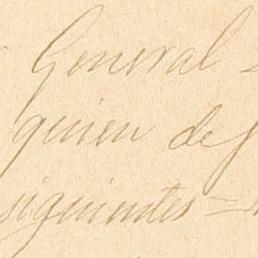 General -
quien de
siguientes -